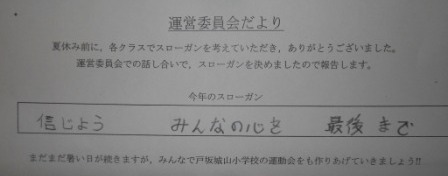 運営委員会だより
夏休み前に、各クラスでスローガンを考えていただき、ありがとうございました。
運営委員会での話し合いで、スローガンを決めましたので報告します。
今年のスローガン
信じよう みんなの心を 最後まで
まだまだ暑い日が続きますが、みんなで戸坂城山小学校の運動会をも作りあげていきましょう!!